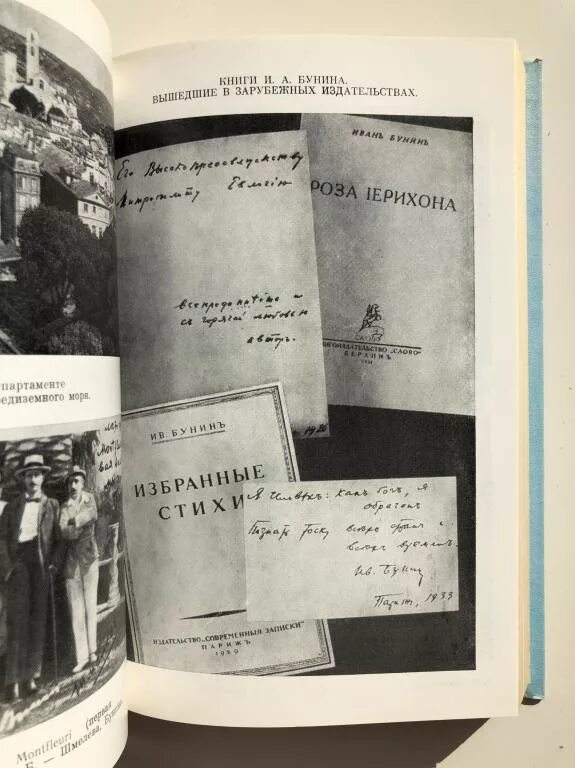 партаменте
редиземного моря.
Montfleuri (первая
Б. — Шмелева, Бунина
КНИГИ И. А. БУНИНА,
ВЫШЕДШИЕ В ЗАРУБЕЖНЫХ ИЗДАТЕЛЬСТВАХ.
Его Высокопреосвященству
Митрополиту Евлогію
всепреданнѣйше и
съ горячей любовью
авторъ.
1920
ИВАНЪ БУНИНЪ
РОЗА ІЕРИХОНА
СЛОВО
КНИГОИЗДАТЕЛЬСТВО „СЛОВО“
БЕРЛИНЪ
ИВ. БУНИНЪ
ИЗБРАННЫЕ
СТИХИ
ИЗДАТЕЛЬСТВО „СОВРЕМЕННЫЯ ЗАПИСКИ“
ПАРИЖЪ
1929
Я человѣкъ: какъ богъ, я
обреченъ
Познать тоску всѣхъ странъ и
всѣхъ временъ.
Ив. Бунин
Париж, 1933